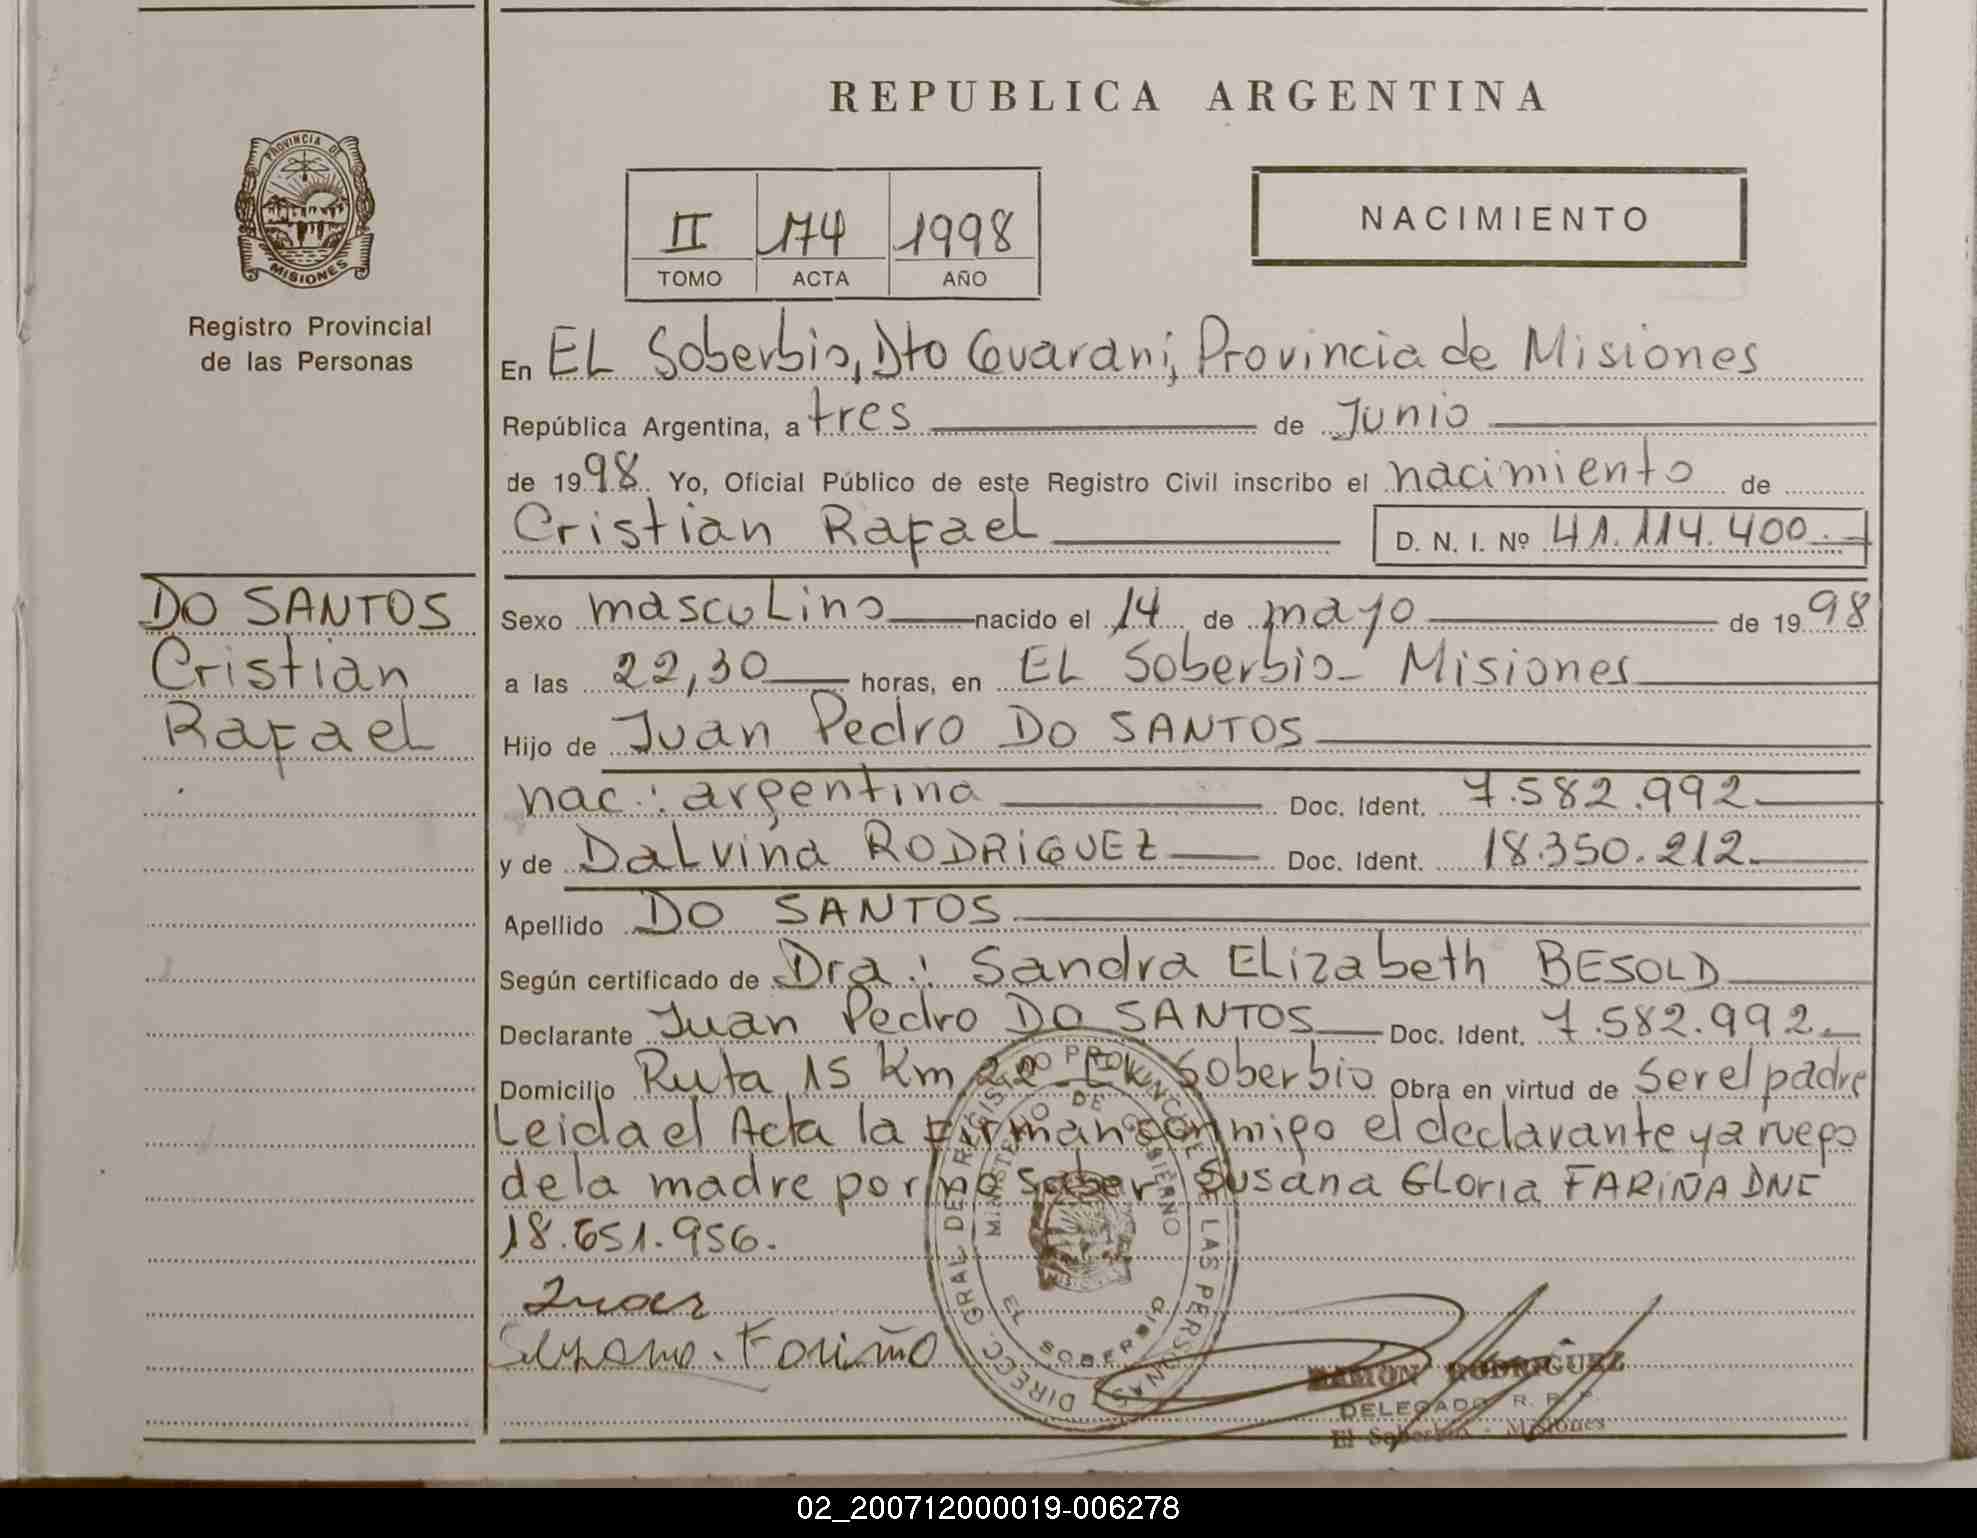 REPUBLICA ARGENTINA
PROVINCIA DE
MISIONES
Registro Provincial
de las Personas
II 174 1998
TOMO ACTA AÑO
NACIMIENTO
En EL Soberbio, Dto Guarani, Provincia de Misiones
República Argentina, a tres de Junio
de 1998. Yo, Oficial Público de este Registro Civil inscribo el nacimiento de
Cristian Rafael D. N. I. Nº 41.114.400.-
DO SANTOS
Cristian
Rafael
Sexo masculino nacido el 14 de mayo de 1998
a las 22,30 horas, en EL Soberbio- Misiones
Hijo de Juan Pedro DO SANTOS
nac.: argentina Doc. Ident. 7.582.992
y de Dalvina RODRIGUEZ Doc. Ident. 18.350.212.
Apellido DO SANTOS
Según certificado de Dra.: Sandra Elizabeth BESOLD
Declarante Juan Pedro DO SANTOS Doc. Ident. 7.582.992.
Domicilio Ruta 15 Km 22 - EL Soberbio Obra en virtud de ser el padre
Leida el Acta la firman conmigo el declarante y a ruego
de la madre por no saber Susana Gloria FARIÑA DNI
18.651.956.
Juan
Susana Fariña
DIRECC. GRAL DE REGISTRO PROVINCIAL DE LAS PERSONAS
MINISTERIO DE GOBIERNO
EL SOBERBIO
RAMON RODRIGUEZ
DELEGADO R. P. P.
El Soberbio - Misiones
02_200712000019-006278